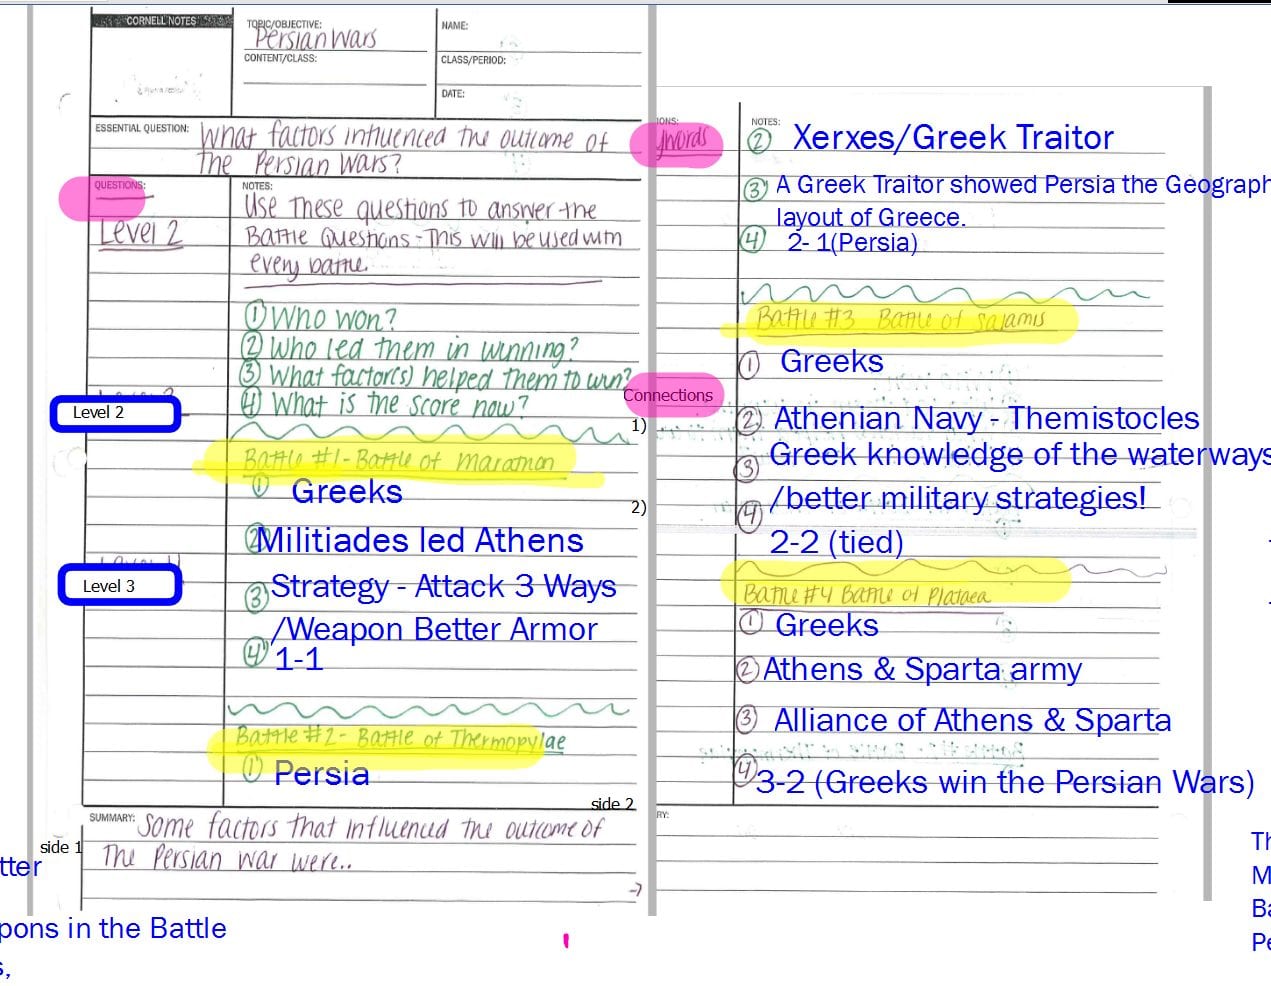 CORNELL NOTES
TOPIC/OBJECTIVE:
Persian Wars
CONTENT/CLASS:
NAME:
CLASS/PERIOD:
DATE:
ESSENTIAL QUESTION: What factors influenced the outcome of
the Persian Wars?
QUESTIONS:
Level 2
NOTES:
Use these questions to answer the
Battle Questions - This will be used with
every battle.
① Who won?
② Who led them in winning?
③ What factor(s) helped them to win?
④ What is the score now?
Level 2
Battle #1 - Battle of Marathon
① Greeks
② Militiades led Athens
Level 3
③ Strategy - Attack 3 Ways
/Weapon Better Armor
④ 1-1
Battle #2 - Battle of Thermopylae
① Persia
side 2
SUMMARY: Some factors that influenced the outcome of
side 1
the Persian War were..
tter
pons in the Battle
s,
IONS:
ywords
NOTES:
② Xerxes/Greek Traitor
③ A Greek Traitor showed Persia the Geograph
layout of Greece.
④ 2- 1(Persia)
Battle #3 Battle of Salamis
① Greeks
Connections
1)
② Athenian Navy - Themistocles
③ Greek knowledge of the waterways
2)
/better military strategies!
④ 2-2 (tied)
Battle #4 Battle of Plataea
① Greeks
② Athens & Sparta army
③ Alliance of Athens & Sparta
④ 3-2 (Greeks win the Persian Wars)
RY:
Th
M
Ba
Pe